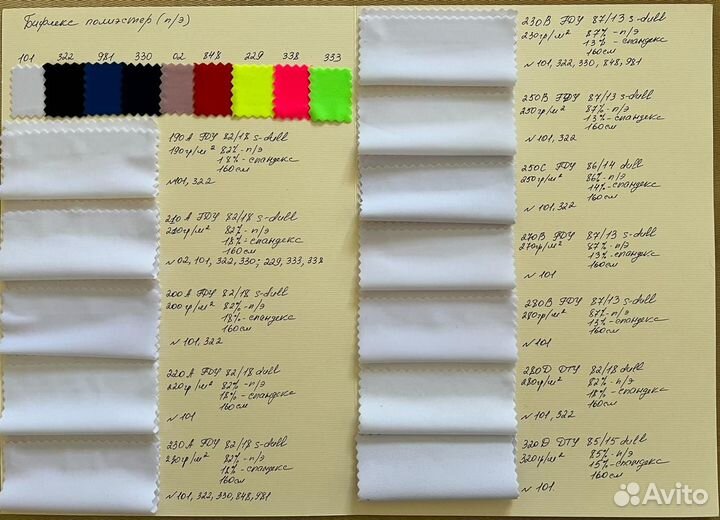 Бифлекс полиэстер (п/э)
101 322 981 330 02 848 229 338 333
190A FDY 82/18 s-dull
190гр/м² 82%-п/э
18%-спандекс
160см
№101, 322
210A FDY 82/18 s-dull
210гр/м² 82%-п/э
18%-спандекс
160см
№02, 101, 322, 330; 229, 333, 338
200A FDY 82/18 s-dull
200гр/м² 82%-п/э
18%-спандекс
160см
№101, 322
220A FDY 82/18 dull
220гр/м² 82%-п/э
18%-спандекс
160см
№101
230A FDY 82/18 s-dull
230гр/м² 82%-п/э
18%-спандекс
160см
№101, 322, 330, 848, 981
230B FDY 87/13 s-dull
230гр/м² 87%-п/э
13%-спандекс
160см
№101, 322, 330, 848, 981
250B FDY 87/13 s-dull
250гр/м² 87%-п/э
13%-спандекс
160см
№101, 322
250C FDY 86/14 dull
250гр/м² 86%-п/э
14%-спандекс
160см
№101, 322
270B FDY 87/13 s-dull
270гр/м² 87%-п/э
13%-спандекс
160см
№101
280B FDY 87/13 s-dull
280гр/м² 87%-п/э
13%-спандекс
160см
№101
280D DTY 82/18 dull
280гр/м² 82%-п/э
18%-спандекс
160см
№101, 322
320D DTY 85/15 dull
320гр/м² 85%-п/э
15%-спандекс
160см
№101.
Avito